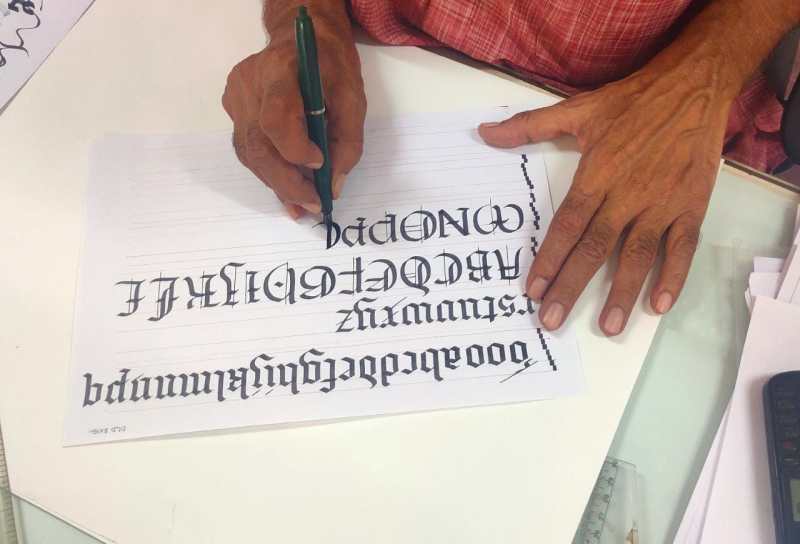 oooabcddefghijklmnopq
rstuvwxyz
ABCDEFGHIJKLL
MNOPPP